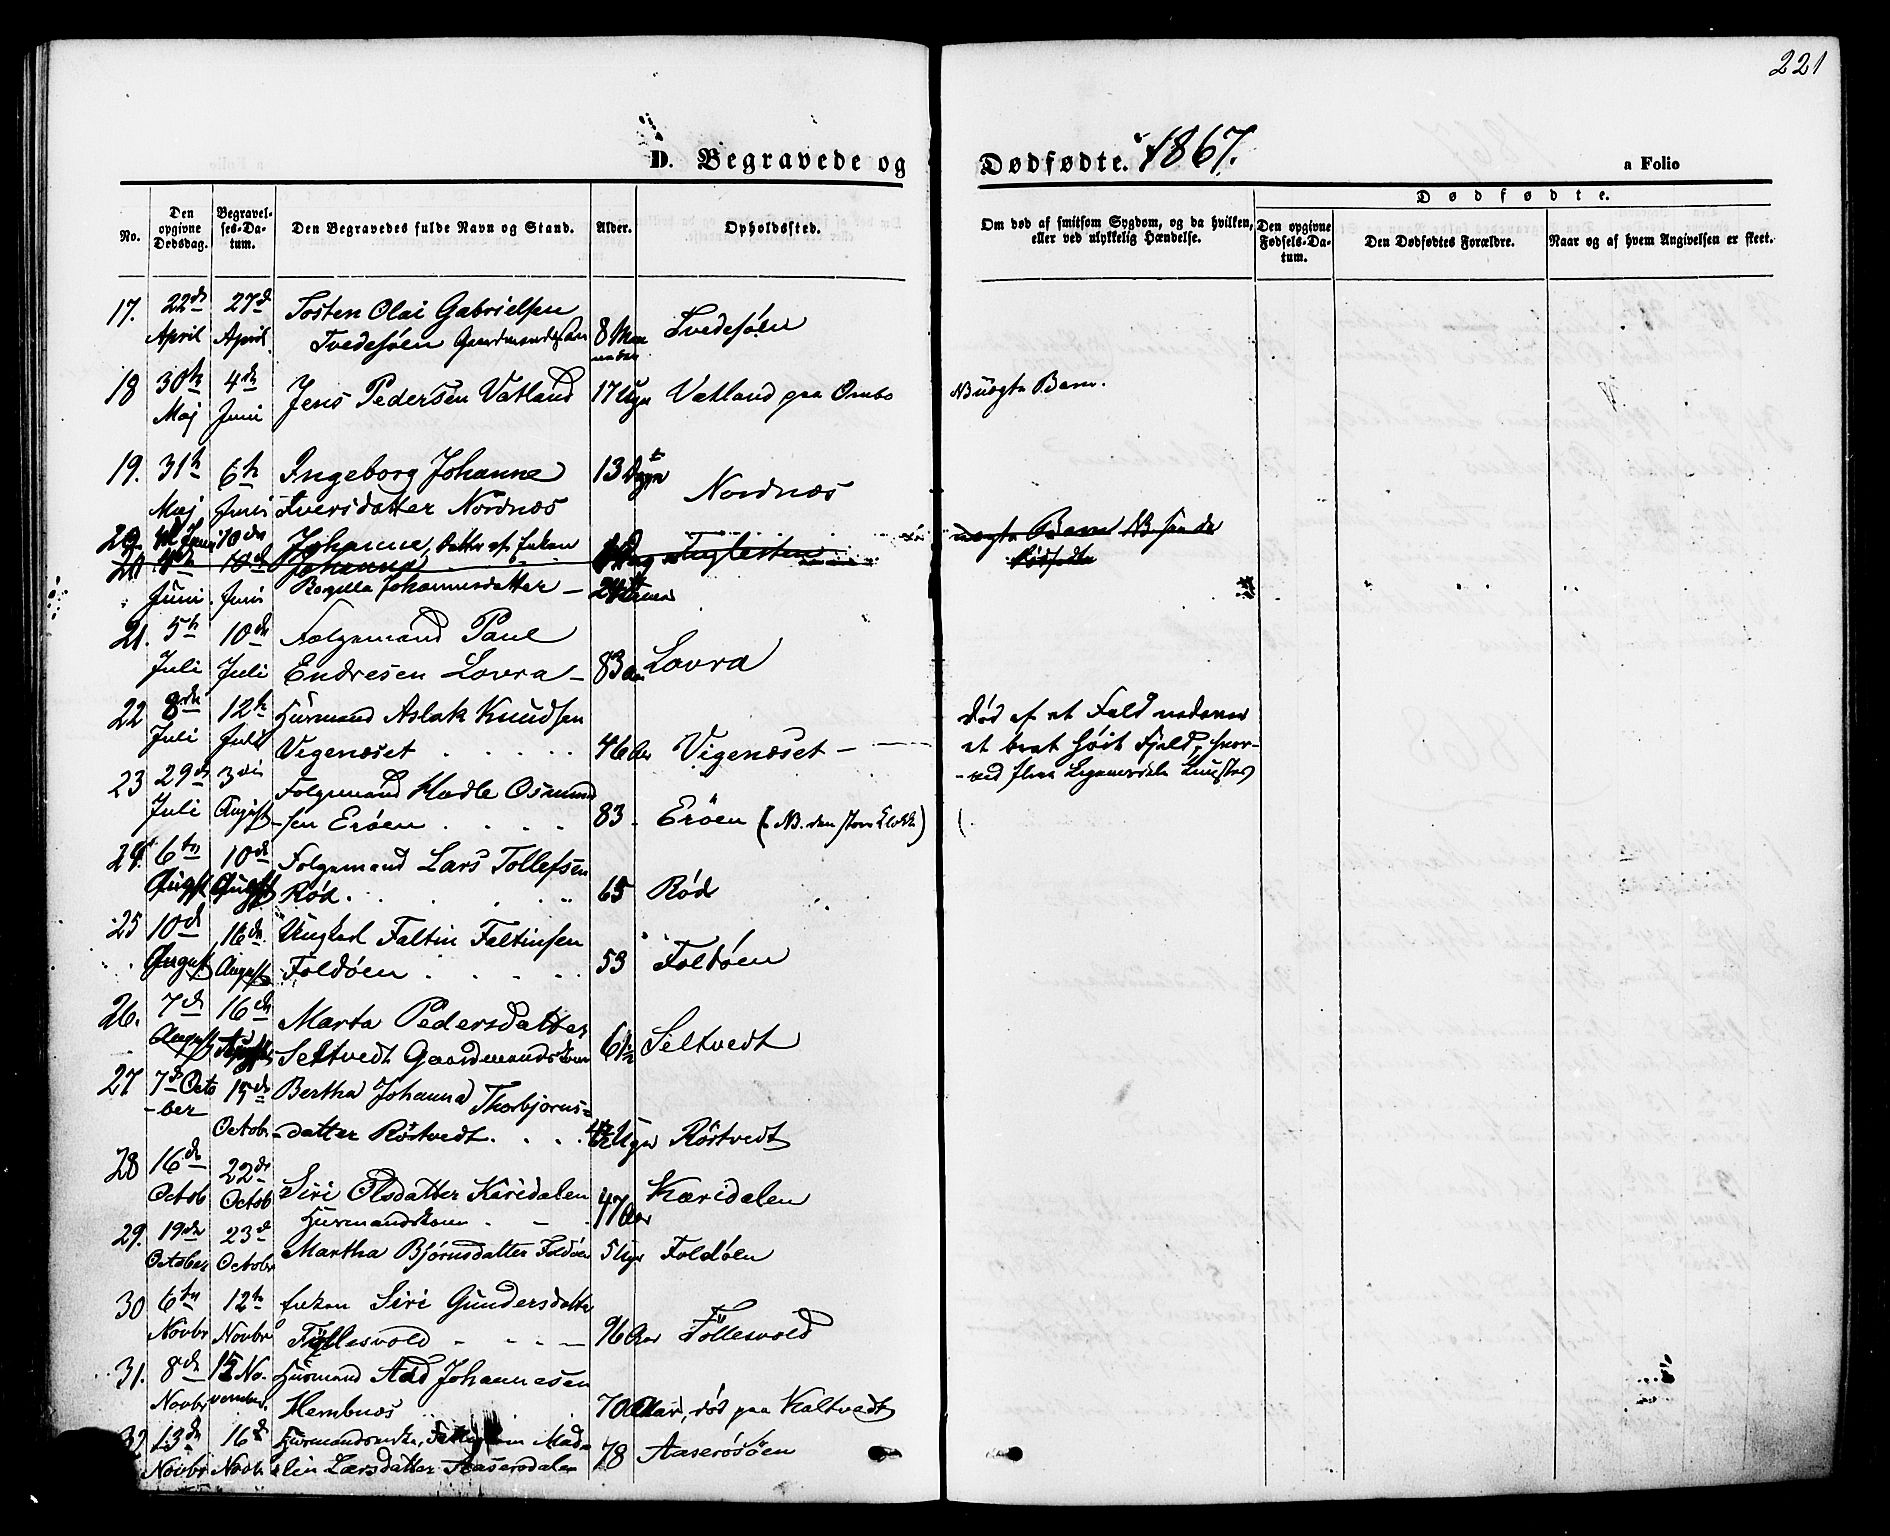 221
D. Begravede og Dødfødte. 1867.
a Folio
No.
Den opgivne Dødsdag.
Begravelses-Datum.
Den Begravedes fulde Navn og Stand.
Alder.
Opholdssted.
Om død af smitsom Sygdom, og da hvilken, eller ved ulykkelig Hændelse.
Dødfødte.
Den opgivne Fødsels-Datum.
Den Dødfødtes Forældre.
Naar og af hvem Angivelsen er skeet.
17. 22de 27de Tosten Olai Gabrielsen
April April Tvedesøen 8 Tvedesøen
18 30te 4de Jens Pedersen Vatland 17 Uger Vatland paa Ombo Buægte Barn.
Maj Juni
19. 31te 6te Ingeborg Johanne 13 Dage Nordnæs
Maj Juni Iversdatter Nordnæs
20 Juni 10de Johanne, Datter af Enken
20 10de Johanna uægte Barn NB
Juni Juni Johannesdatter Dødfødte
21. 5te 10de Folgemand Paul
Juli Juli Endresen Lovra 83 Aar Lovra
22 8de 12te Huusmand Aslak Knudsen Død af et Fald nedover
Juli Juli Vigenæset 46 Aar Vigenæset et brat høit Fjeld,
23 29de 3die Folgemand Hadle Osmund
Juli August -sen Erøen 83 Erøen (NB. den store Klokke)
24. 6te 10de Folgemand Lars Tollefsen
August August Rød 65 Rød
25 10de 16de Ungkarl Faltin Faltinsen
August August Foldøen 53 Foldøen
26. 7de 16de Marta Pedersdatter
August August Seltvedt Gaardmandskone 61 Seltvedt
27 7de Octo 15de Bertha Johanna Thorbjørns-
-ber Octobr -datter Røstvedt Uger Røstvedt
28 16de 22de Siri Olsdatter Karidalen 47 Aar Karidalen
Octob Octob Huusmandskone
29. 19de 23de Martha Bjørnsdatter Foldøen 5 Uger Foldøen
October Octobr
30 6te 12te Enken Siri Gundersdatter
Novbr Novbr Føllesvold 96 Aar Föllesvold
31. 8de 15 No- Huusmand Aad Johannesen
Novbr vember Hembnæs 70 Aar, død paa Kaltvedt
32 13de 16de Mada-
Novbr Novbr lin Larsdatter Aaserødalen 78 Aaserøsøen